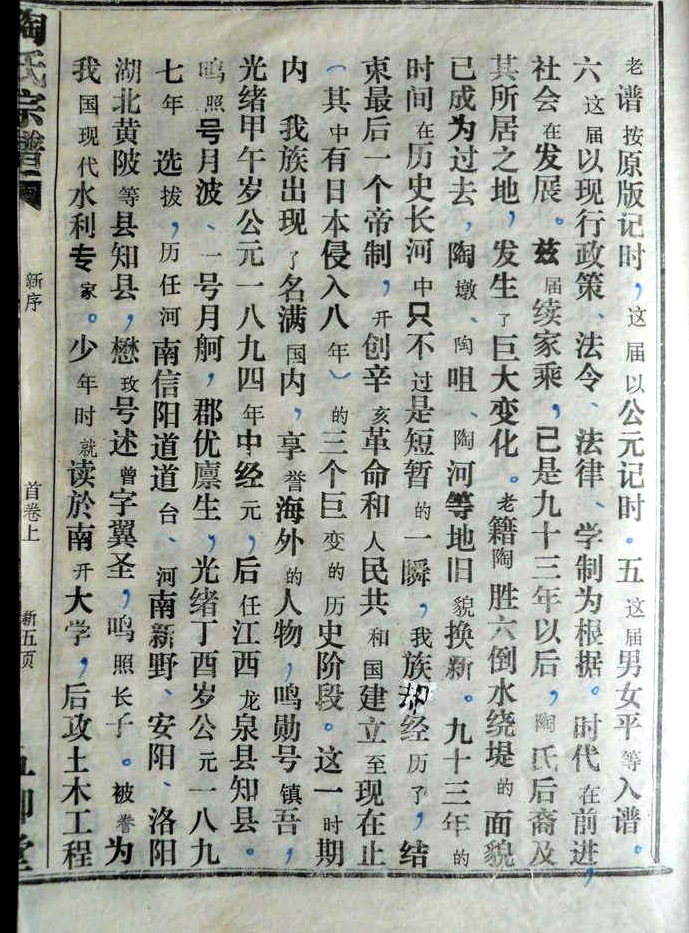 老谱按原版记时，这届以公元记时。五这届男女平等入谱。
六这届以现行政策、法令、法律、学制为根据。时代在前进，
社会在发展。兹届续家乘，已是九十三年以后，陶氏后裔及
其所居之地，发生了巨大变化。老籍陶胜六倒水绕堤的面貌
已成为过去，陶墩、陶咀、陶河等地旧貌换新。九十三年的
时间在历史长河中只不过是短暂的一瞬，我族却经历了，结
束最后一个帝制，开创辛亥革命和人民共和国建立至现在止
（其中有日本侵入八年）的三个巨变的历史阶段。这一时期
内我族出现了名满国内，享誉海外的人物，鸣勋号镇吾，
光绪甲午岁公元一八九四年中经元，后任江西龙泉县知县。
鸣照号月波、一号月舸，郡优廪生，光绪丁酉岁公元一八九
七年选拔，历任河南信阳道道台、河南新野、安阳、洛阳
湖北黄陂等县知县，懋玫号述曾字翼圣，鸣照长子。被誉为
我国现代水利专家。少年时就读於南开大学，后攻土木工程
陶氏宗谱 新序 首卷上 新五页 五柳堂